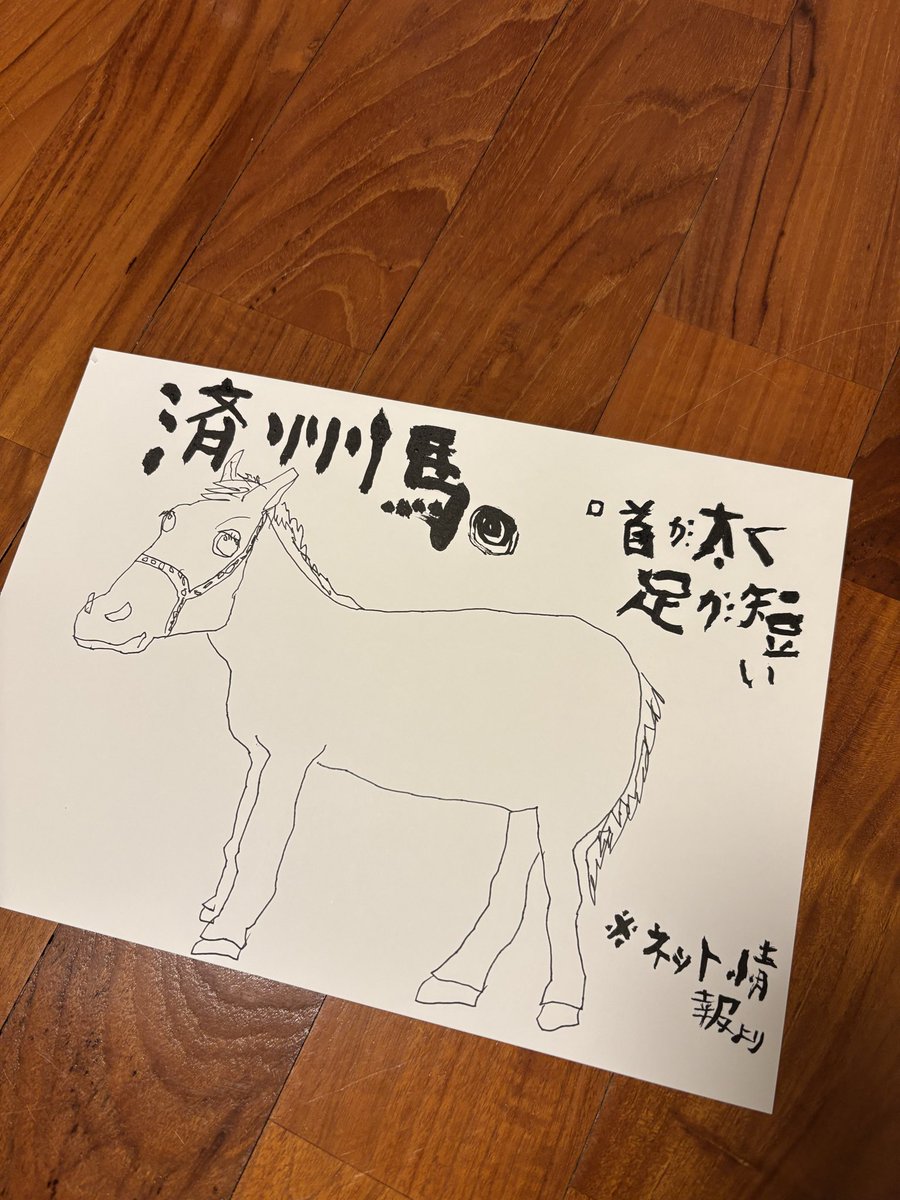 済州馬。
首が太く
足が短
い
※ネット情
報より